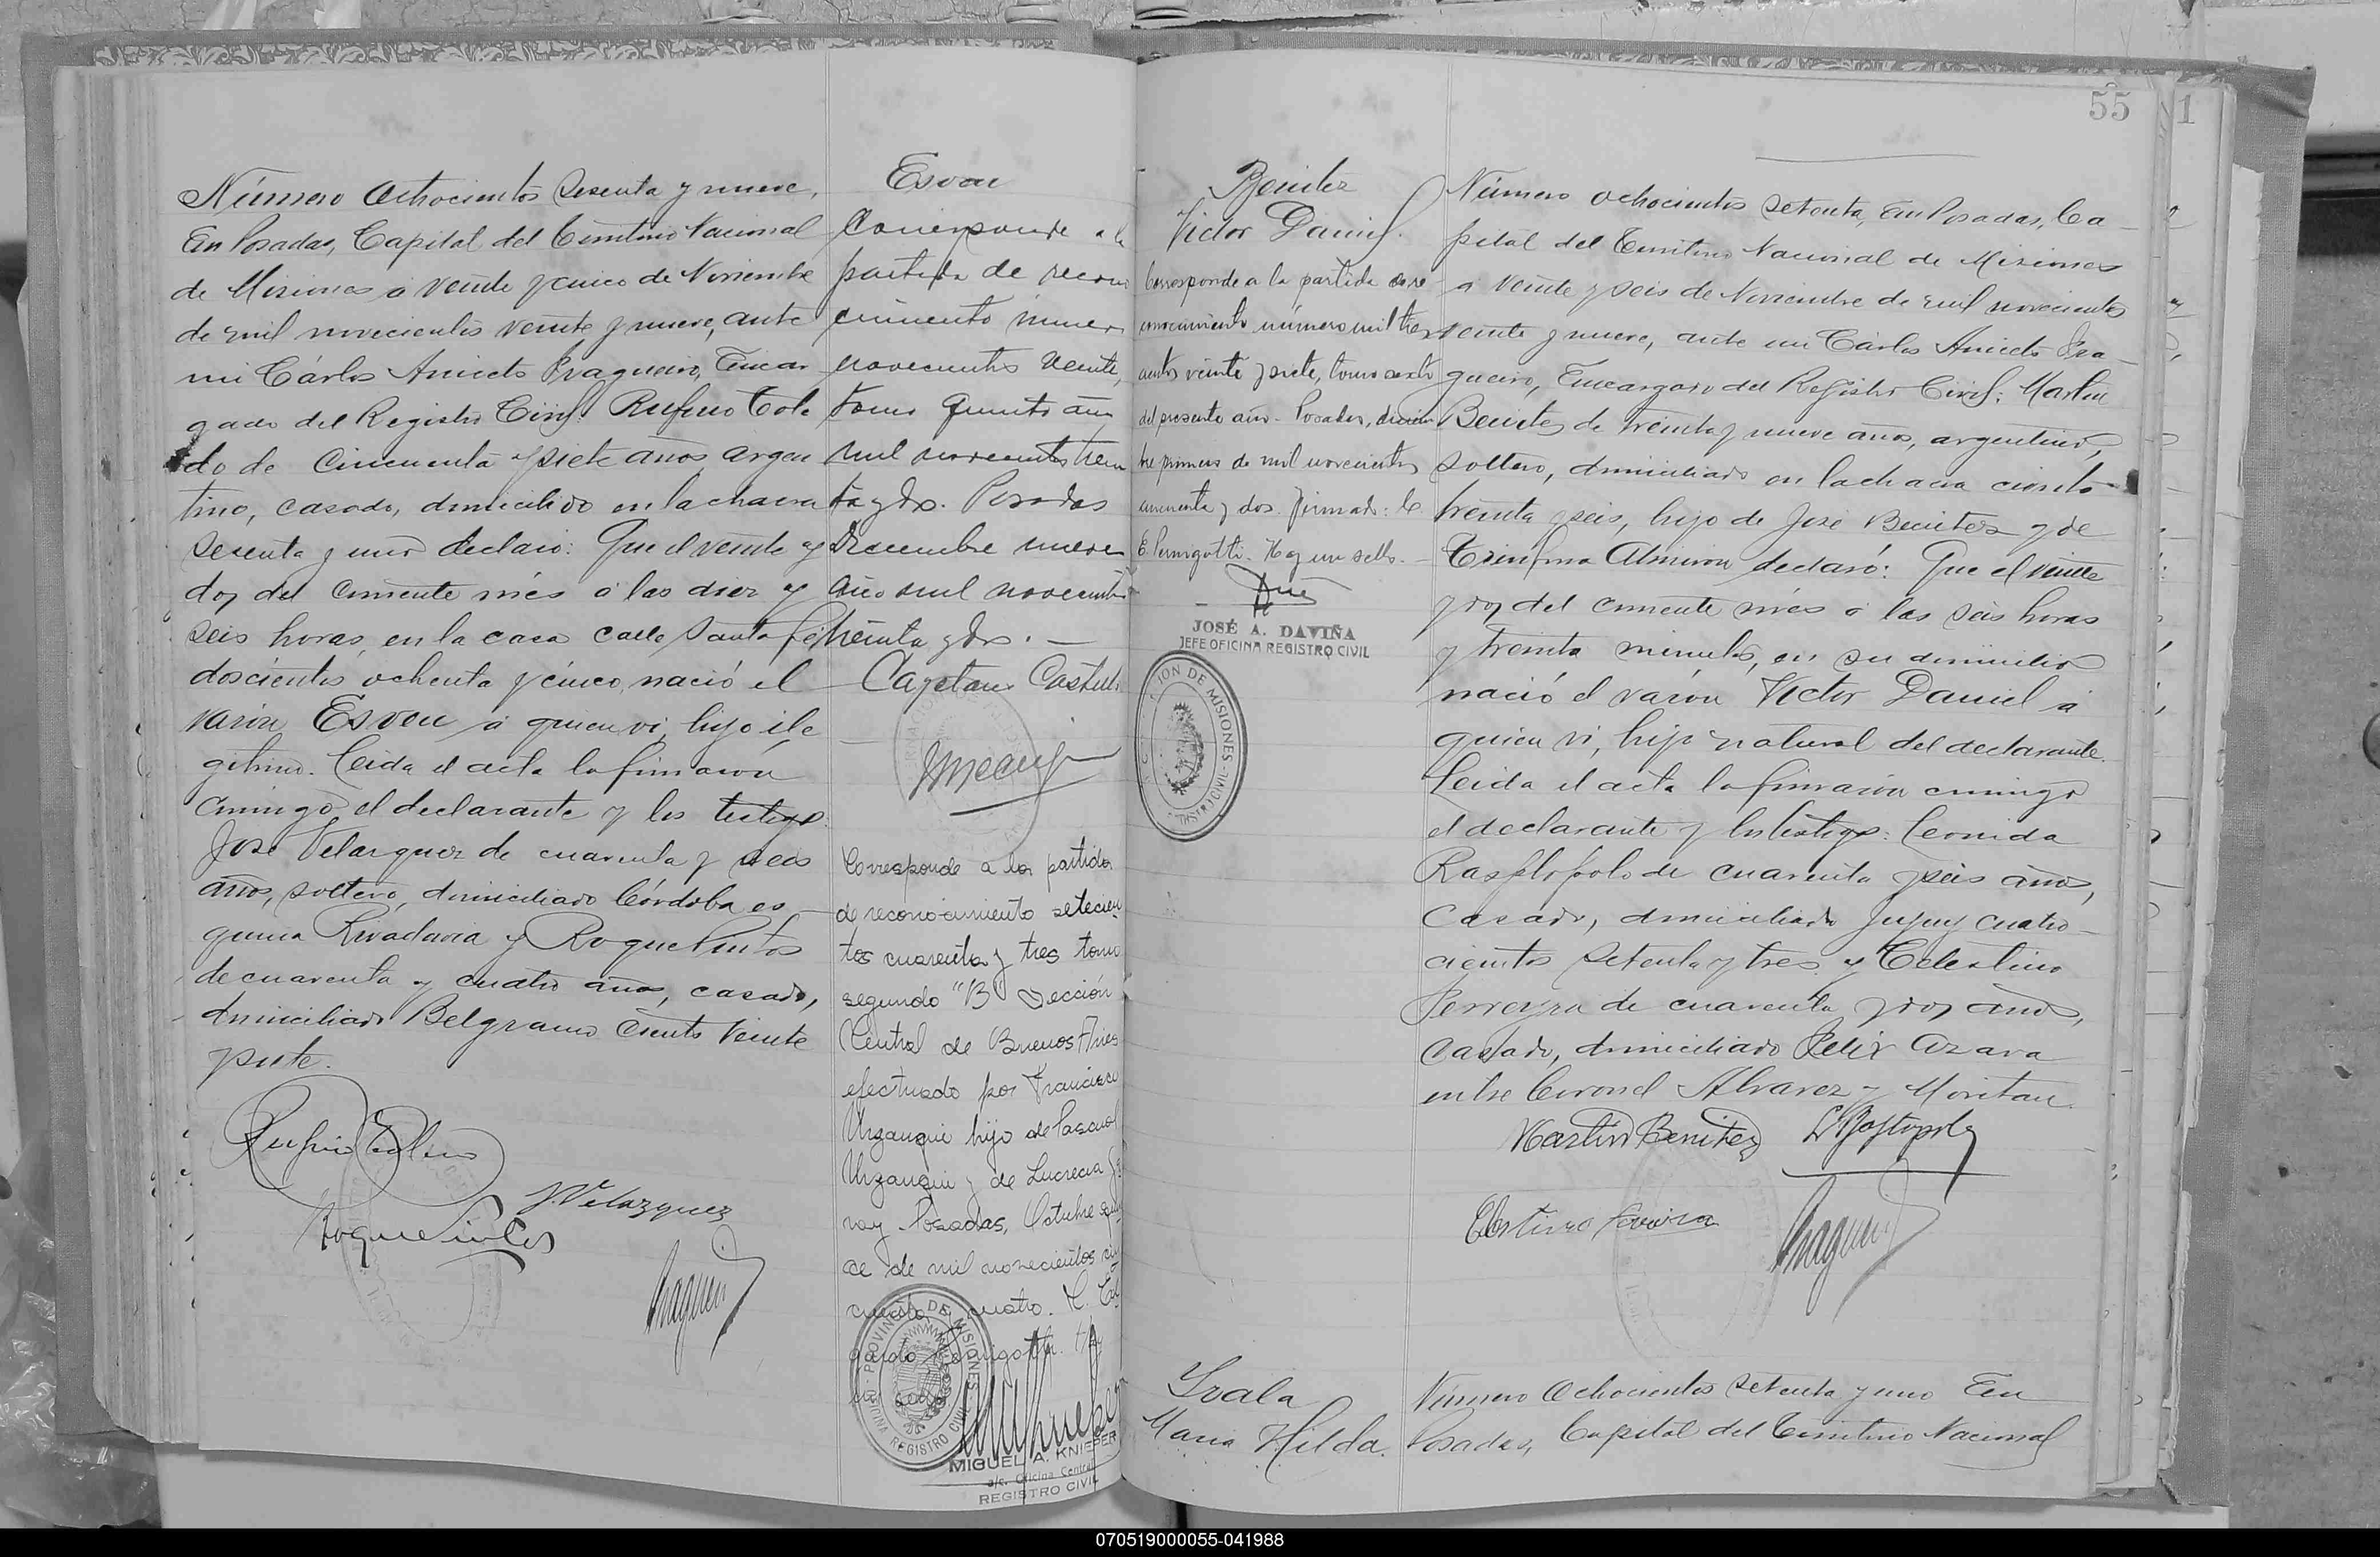 Número Ochocientos Sesenta y nueve,
En Posadas, Capital del Territorio Nacional
de Misiones a veinte y cinco de Noviembre
de mil novecientos veinte y nueve, ante
mi Cárlos Aniceto Fragueiro, Encar
gado del Registro Civil: Rufino Tole
do de cincuenta y siete años argen
tino, casado, domicilido en la chacra
sesenta y uno declaró: Que el veinte y
dos del corriente més a las diez y
seis horas, en la casa calle Santa fé
doscientos ochenta y cinco, nació el
varón Esvou a quien vi, hijo ile
gitimo. Leida el acta la firmaron
conmigo el declarante y los testigos
José Velazquez de cuarenta y seis
años, soltero, domiciliado Córdoba es
quina Rivadavia y Roque Pintos
de cuarenta y cuatro años, casado,
domiciliado Belgrano ciento veinte
y siete.
Roque Pintos
J. Velazquez
Esvou
Corresponde a la
partida de recono
cimiento número
novecientos veinte,
tomo quinto año
mil novecientos trein
ta y dos. Posadas
Diciembre nueve
año mil novecientos
treinta y dos. —
Cayetano Castul
Corresponde a la partida
de reconocimiento setecien
tos cuarenta y tres tomo
segundo "B" Sección
Central de Buenos Aires
efectuado por Francisco
Urzanqui hijo de Pascual
Urzanqui y de Lucrecia
Posadas, Octubre
ce de mil novecientos cin
cuenta y cuatro.
PROVINCIA DE MISIONES
OFICINA REGISTRO CIVIL
MIGUEL A. KNIEPER
a/c. Oficina Central
REGISTRO CIVIL
55
1
Benitez
Victor Daniel.
Corresponde a la partida de re
conocimiento número mil tres
cientos veinte y siete, tomo sexto
del presente año - Posadas, diciem
bre primero de mil novecientos
cincuenta y dos. Firmado: C.
E. Pernigotti. Hay un sello. —
JOSÉ A. DAVIÑA
JEFE OFICINA REGISTRO CIVIL
Número ochocientos setenta, En Posadas, Ca
pital del Territorio Nacional de Misiones
a veinte y seis de Noviembre de mil novecientos
veinte y nueve, ante mi Cárlos Aniceto Fra
gueiro, Encargado del Registro Civil: Martin
Benitez de treinta y nueve años, argentino,
soltero, domiciliado en la chacra ciento
treinta y seis, hijo de José Benitez y de
Trinfona Almiron declaró: Que el veinte
y dos del corriente més a las seis horas
y treinta minutos, en su domicilio
nació el varón Victor Daniel a
quien vi, hijo natural del declarante.
Leida el acta la firmaron conmigo
el declarante y los testigos: Leonida
de cuarenta y seis años,
casado, domiciliado Jujuy cuatro
cientos setenta y tres y Celestino
Ferreyra de cuarenta y dos años,
casado, domiciliado Felix Azara
entre Coronel Alvarez y Moritan.
Martin Benitez
Ivala
Maria Hilda.
Número Ochocientos Setenta y uno En
Posadas, Capital del Territorio Nacional
070519000055-041988